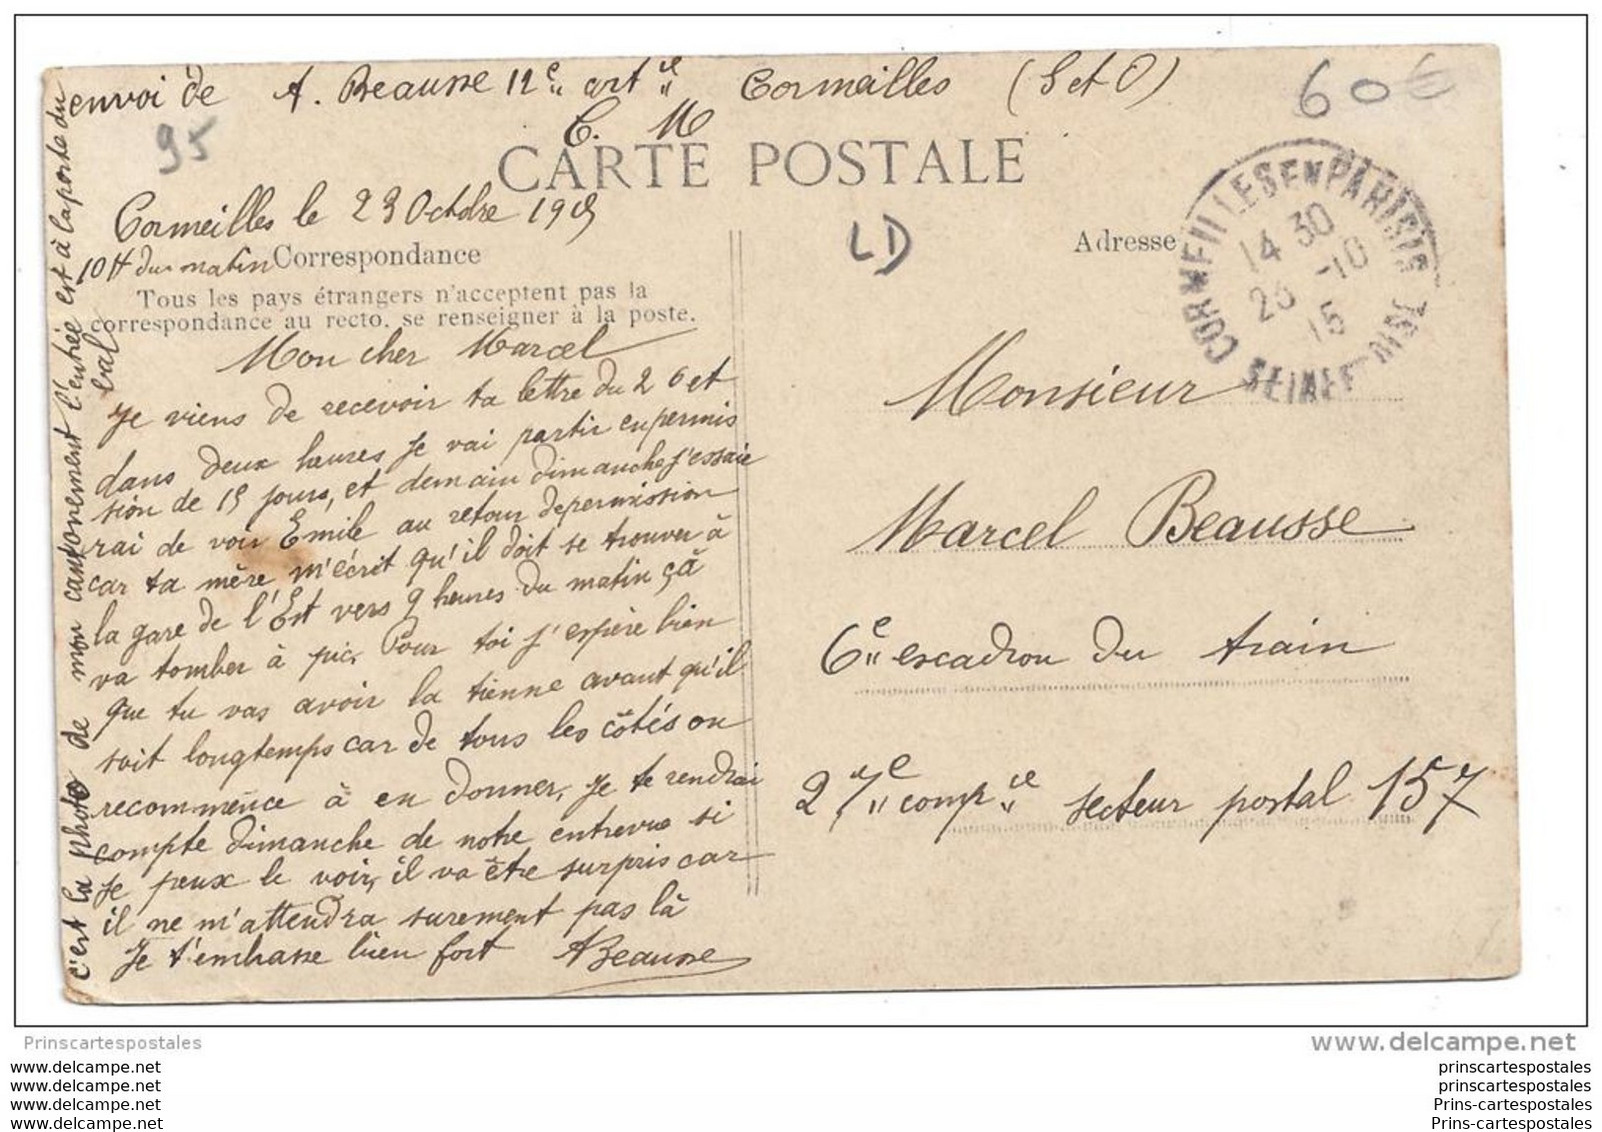 envoi de A. Beausse 12e art ie Cormeilles (S et O)
C. M
95
60€
CARTE POSTALE
Cormeilles le 23 Octobre 1915
10H du matin
Correspondance
Tous les pays étrangers n'acceptent pas la
correspondance au recto, se renseigner à la poste.
Mon cher Marcel
Je viens de recevoir ta lettre du 20 et
dans deux heures je vai partir en permis
sion de 15 jours, et demain dimanche j'essaie
rai de voir Emile au retour de permission
car ta mère m'écrit qu'il doit se trouver à
la gare de l'Est vers 9 heures du matin, çà
va tomber à pic. Pour toi j'espère bien
que tu vas avoir la tienne avant qu'il
soit longtemps car de tous les côtés on
recommence à en donner, je te rendrai
compte dimanche de notre entrevue si
je peux le voir, il va être surpris car
il ne m'attendra surement pas là
Je t'embrasse bien fort ABeausse
c'est la photo de mon cantonnement l'entrée est à la porte du
bal
LD
Adresse
CORMEILLES EN PARISIS
14 30
23 -10
15
SEINE ET OISE
Monsieur
Marcel Beausse
6e escadron du train
27e comp ie secteur postal 157
Prinscartespostales
www.delcampe.net
www.delcampe.net
www.delcampe.net
www.delcampe.net
www.delcampe.net
prinscartespostales
prinscartespostales
Prins-cartespostales
Prins-cartespostales